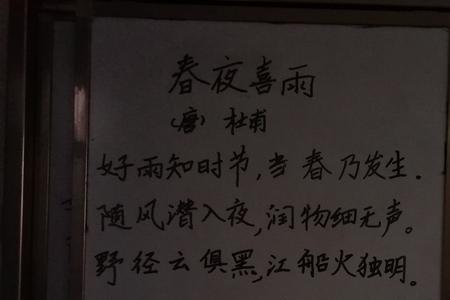 春夜喜雨
(唐) 杜甫
好雨知时节,当春乃发生.
随风潜入夜,润物细无声。
野径云俱黑,江船火独明。